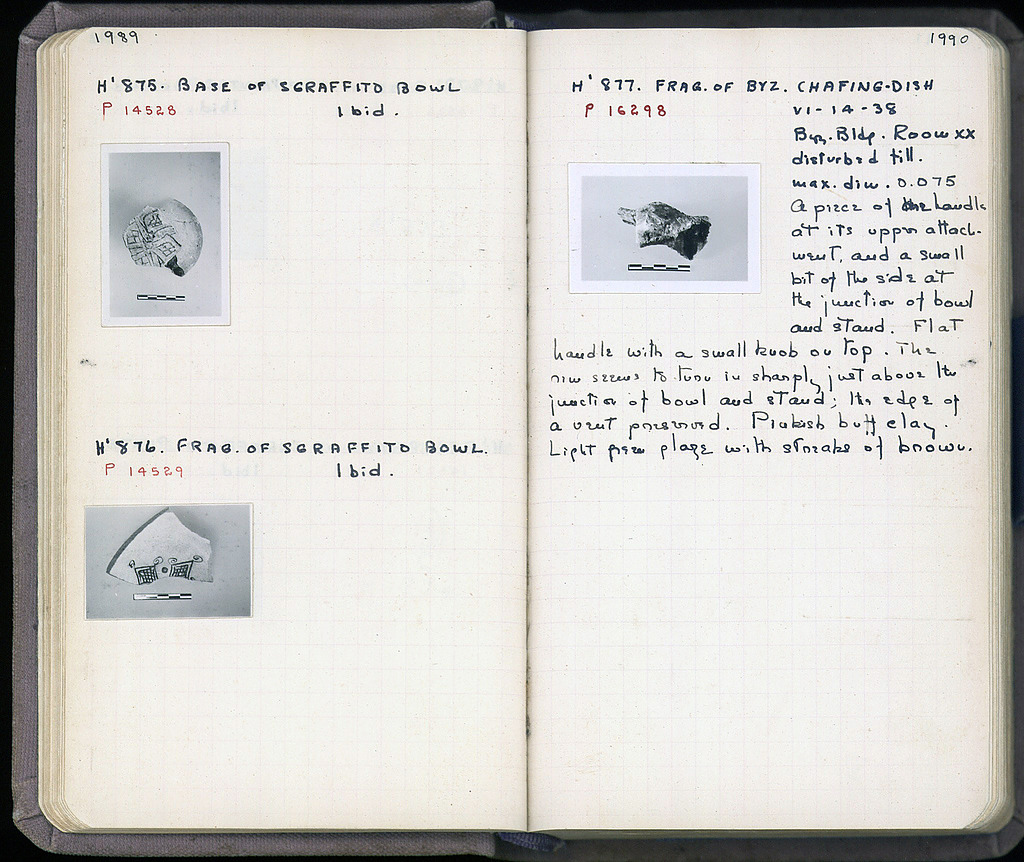 1989
H'875. BASE OF SGRAFFITO BOWL
P 14528 Ibid.
H'876. FRAG. OF SGRAFFITO BOWL.
P 14529 Ibid.
1990
H'877. FRAG. OF BYZ. CHAFING-DISH
P 16298 VI-14-38
Byz. Bldg. Room XX
disturbed fill.
max. dim. 0.075
A piece of the handle
at its upper attach-
ment, and a small
bit of the side at
the junction of bowl
and stand. Flat
handle with a small knob on top. The
rim seems to turn in sharply just above the
junction of bowl and stand; the edge of
a vent preserved. Pinkish buff clay.
Light green glaze with streaks of brown.